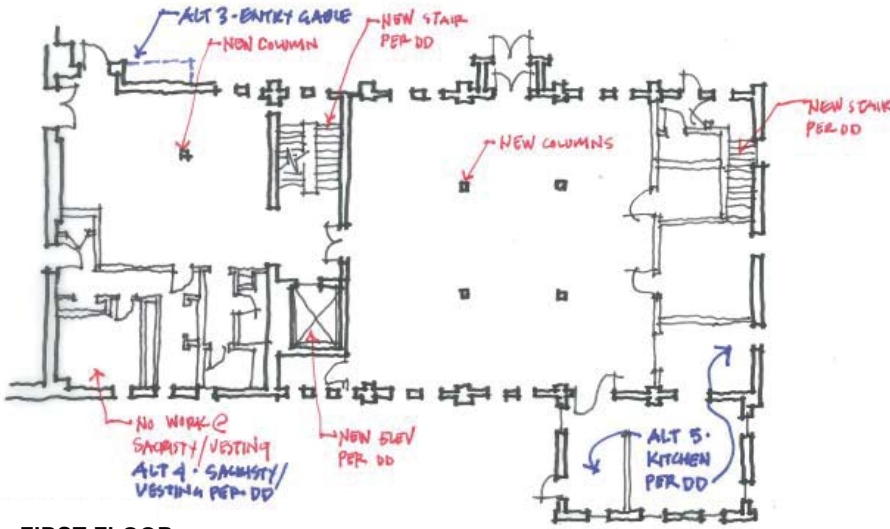 ALT 3 - ENTRY GABLE
NEW COLUMN
NEW STAIR
PER DD
NEW COLUMNS
NEW STAIR
PER DD
NO WORK @
SACRISTY/VESTING
ALT 4 · SACRISTY/
VESTING PER DD
NEW ELEV
PER DD
ALT 5 ·
KITCHEN
PER DD
FIRST FLOOR